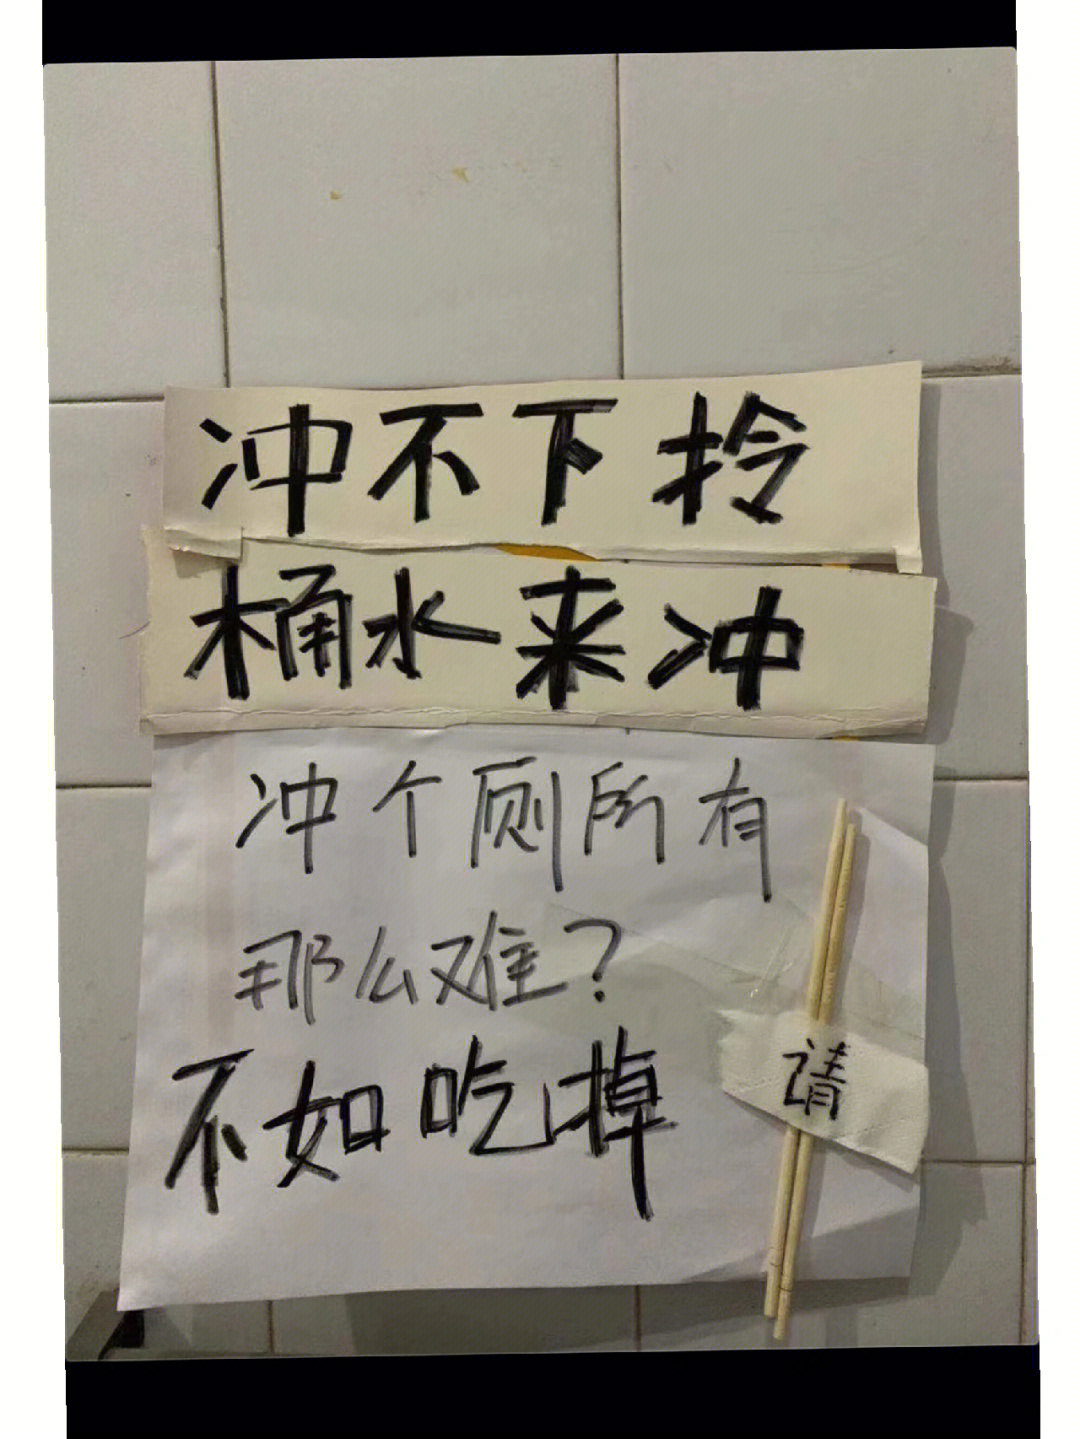 冲不下拎
桶水来冲
冲个厕所有
那么难？
不如吃掉
请